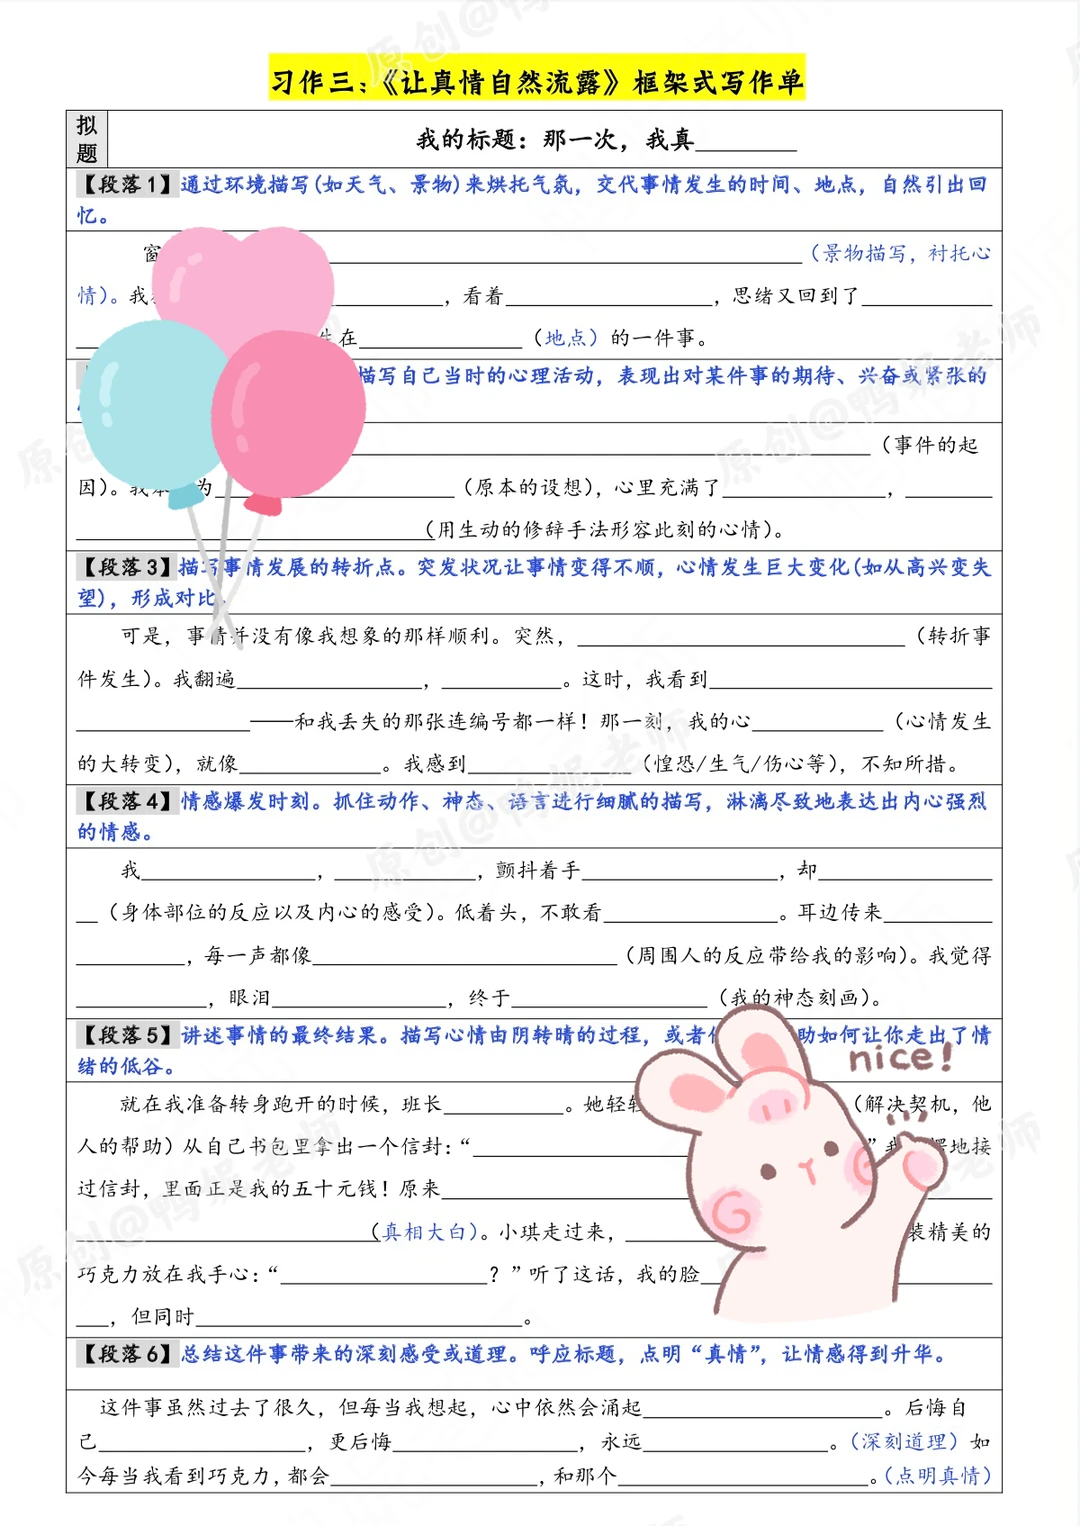 习作三：《让真情自然流露》框架式写作单
拟题
我的标题：那一次，我真________
【段落1】通过环境描写(如天气、景物)来烘托气氛，交代事情发生的时间、地点，自然引出回
忆。
窗________（景物描写，衬托心
情）。我________，看着________，思绪又回到了________
________在________（地点）的一件事。
描写自己当时的心理活动，表现出对某件事的期待、兴奋或紧张的
________（事件的起
因）。我本 为________（原本的设想），心里充满了________，________
________（用生动的修辞手法形容此刻的心情）。
【段落3】描写事情发展的转折点。突发状况让事情变得不顺，心情发生巨大变化(如从高兴变失
望)，形成对比。
可是，事情并没有像我想象的那样顺利。突然，________（转折事
件发生）。我翻遍________，________。这时，我看到________
________——和我丢失的那张连编号都一样！那一刻，我的心________（心情发生
的大转变），就像________。我感到________（惶恐/生气/伤心等），不知所措。
【段落4】情感爆发时刻。抓住动作、神态、语言进行细腻的描写，淋漓尽致地表达出内心强烈
的情感。
我________，________，颤抖着手________，却________
__（身体部位的反应以及内心的感受）。低着头，不敢看________。耳边传来________
________，每一声都像________（周围人的反应带给我的影响）。我觉得
________，眼泪________，终于________（我的神态刻画）。
【段落5】讲述事情的最终结果。描写心情由阴转晴的过程，或者 助如何让你走出了情
绪的低谷。
就在我准备转身跑开的时候，班长________。她轻轻 （解决契机，他
人的帮助）从自己书包里拿出一个信封：“________”我 愣地接
过信封，里面正是我的五十元钱！原来________
________（真相大白）。小琪走过来，________装精美的
巧克力放在我手心：“________？”听了这话，我的脸________
___，但同时________。
【段落6】总结这件事带来的深刻感受或道理。呼应标题，点明“真情”，让情感得到升华。
这件事虽然过去了很久，但每当我想起，心中依然会涌起________。后悔自
己________，更后悔________，永远________。（深刻道理）如
今每当我看到巧克力，都会________，和那个________。（点明真情）
nice!
原创@鸭妮老师